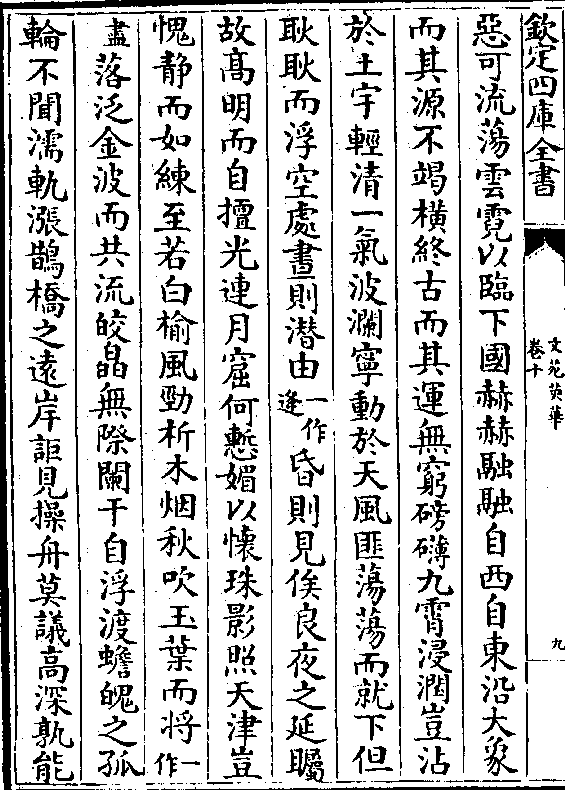 欽定四庫全書
文苑英華
卷十
九
惡可流蕩雲霓以臨下國赫赫融融自西自東沿大象
而其源不竭橫終古而其運無窮磅礴九霄浸潤豈沾
於土宇輕清一氣波瀾寧動於天風匪蕩蕩而就下但
耿耿而浮空處晝則潛由一作逢昏則見俟良夜之延矚
故髙明而自擅光連月窟何慙媚以懷珠影照天津豈
愧静而如練至若白榆風勁析木烟秋吹玉葉而將一作
盡落泛金波而共流皎皛無際闌干自浮渡蟾魄之孤
輪不聞濡軌漲鵲橋之遠岸詎見操舟莫議高深孰能